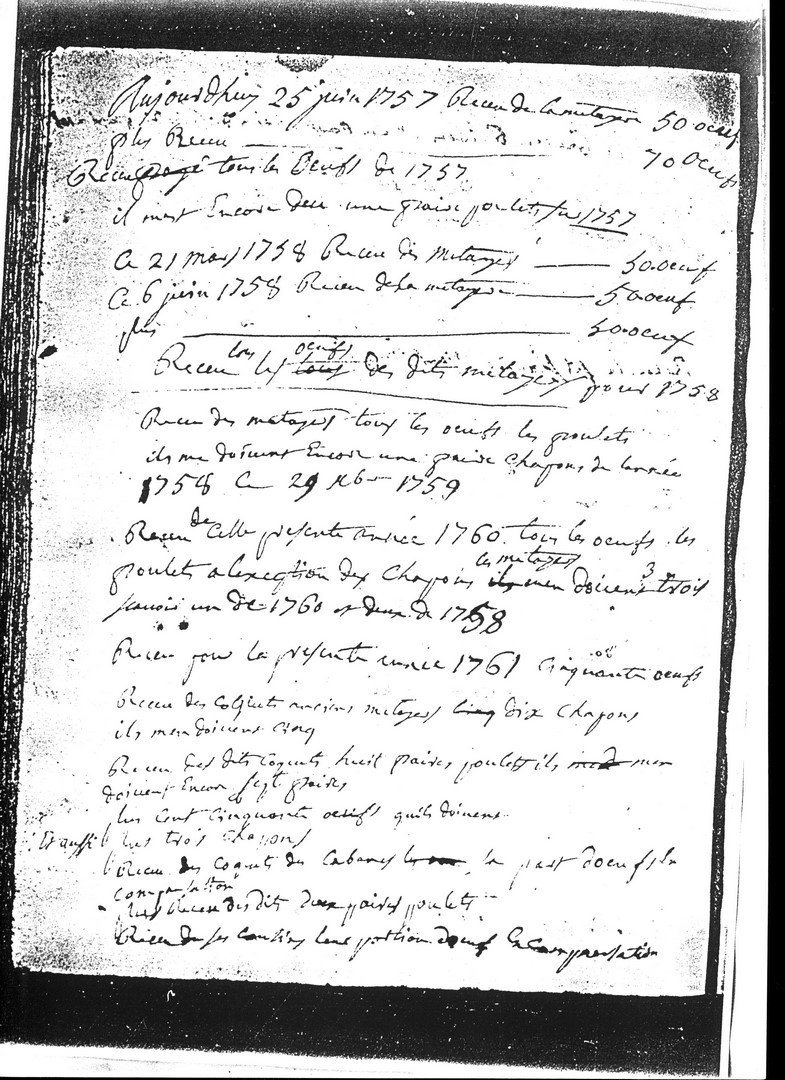 Aujourdhuy 25 juin 1757 Receu de la metayre 50 oeufs
plus Receu 70 oeufs
Receu tous les Oeufs de 1757
il mest Encore deu une paire poulets 1757
Ce 21 mars 1758 Receu des metayes 50 oeuf
Ce 6 juin 1758 Receu de la metayre 50 oeuf
plus 50 oeuf
Receu tous les oeufs des dits metayes pour 1758
Receu des metayes tous les oeufs les poulets
ils me doivent Encore une paire chapons de lannée
1758 Ce 29 1759
Receu de Cette presente année 1760 tous les oeufs les
poulets a lexception des chapons les metayes men doivent 3 trois
scavoir un de 1760 et deux de 1758
Receu pour la presente année 1761 cinquante oeufs
Receu des Coquets anciens metayes dix chapons
ils men doivent cinq
Receu des dits Coquets huit paires poulets ils men
doivent Encor sept paires
plus cent cinquante oeufs quils doivent
Et aussi plus trois chapons
Receu des Coquets des Cabanes la part doeufs En
compensation
plus Receu des dits deux paires poulets
Receu de ses cousins leur portion doeuf En compensation